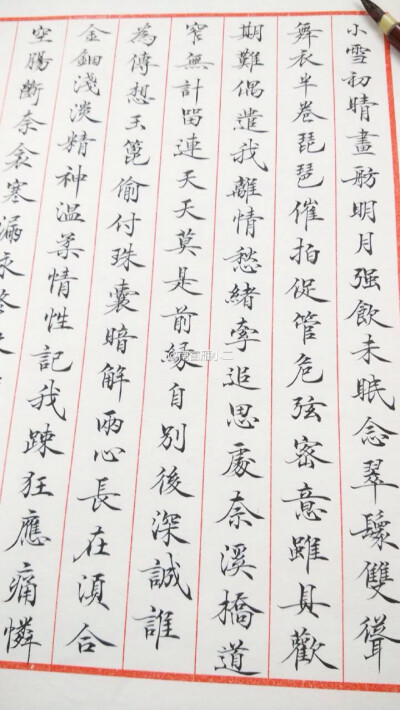 小雪初晴畫舫明月强飲未眠念翠鬟雙聳
舞衣半卷琵琶催拍促管危弦密意雖具歡
期難偶遣我離情愁緒牽追思處奈溪橋道
窄無計留連天天莫是前緣自別後深誠誰
為傳想玉篦偷付珠囊暗解兩心長在須合
金鈿淺淡精神溫柔情性記我踈狂應痛憐
空腸斷奈衾寒漏永終